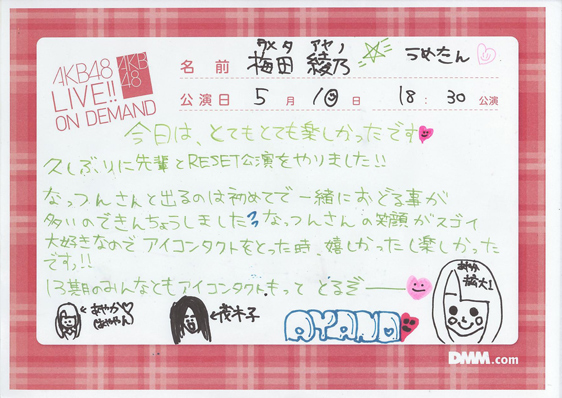 AKB48
LIVE!!
ON DEMAND
AKB
48
ウメダ アヤノ
名前 梅田 綾乃 うめたん
公演日 5月 10日 18:30 公演
今日は、とてもとても楽しかったです
久しぶりに先輩とRESET公演をやりました!!
なっつんさんと出るのは初めてで一緒におどる事が
多いのできんちょうしました なっつんさんの笑顔がスゴイ
大好きなのでアイコンタクトをとった時、嬉しかったし楽しかった
ですッ!!
13期のみんなともアイコンタクトもって とるぞー
あやか
あやか
茂木子
AYANO
DMM.com